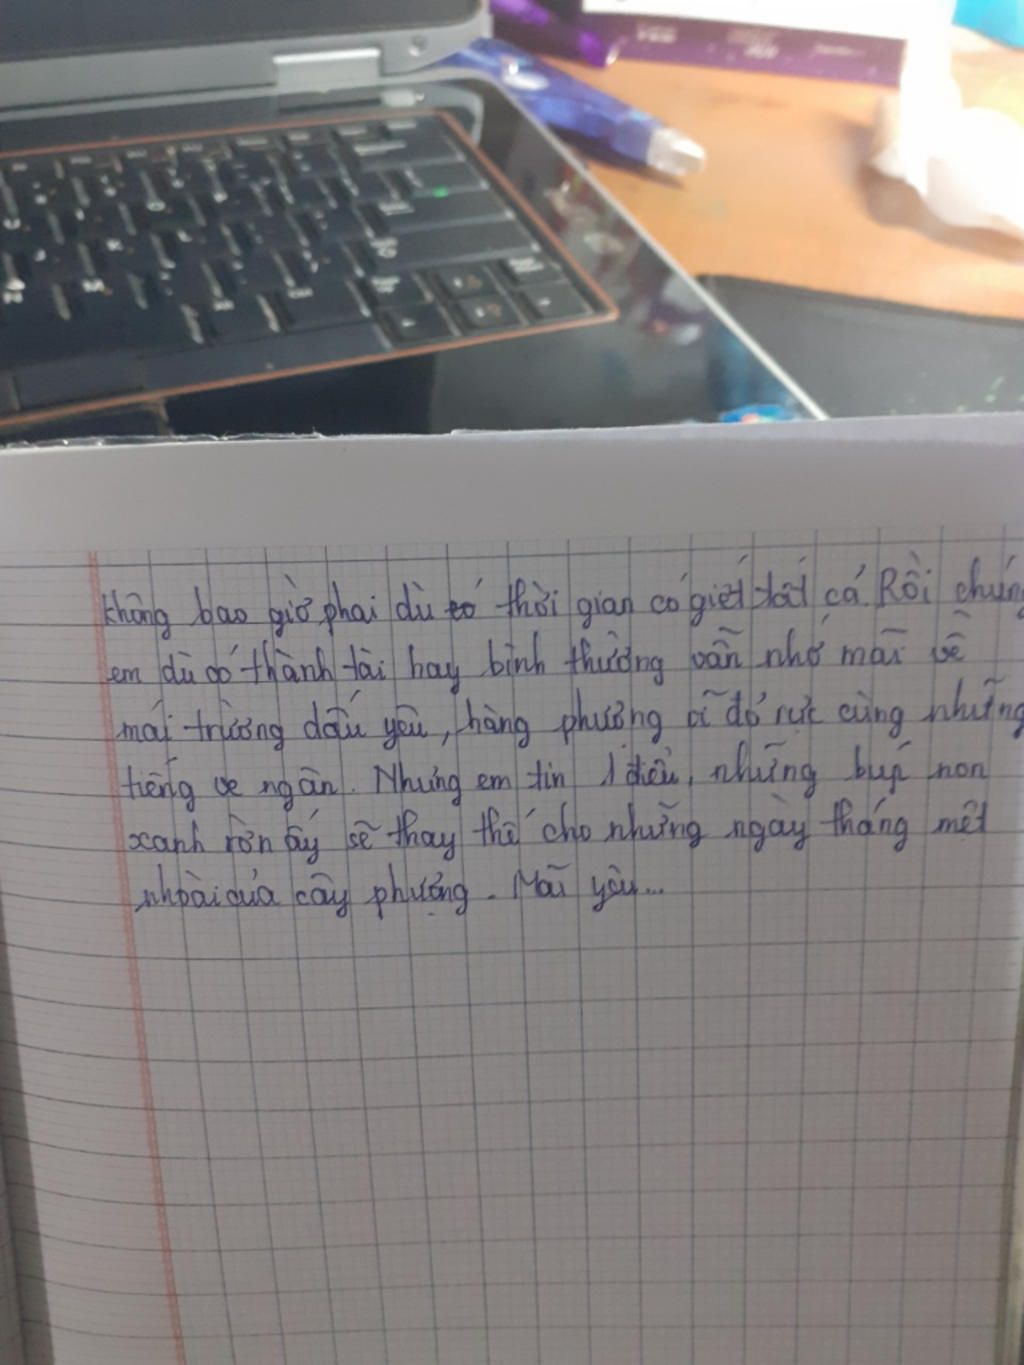 không bao giờ phai dù có thời gian có giết tất cả. Rồi chúng
em dù có thành tài hay bình thường vẫn nhớ mãi về
mái trường dấu yêu, hàng phượng vĩ đỏ rực cùng những
tiếng ve ngân. Nhưng em tin 1 điều, những búp non
xanh rờn ấy sẽ thay thế cho những ngày tháng mệt
nhoài của cây phượng. Mãi yêu...